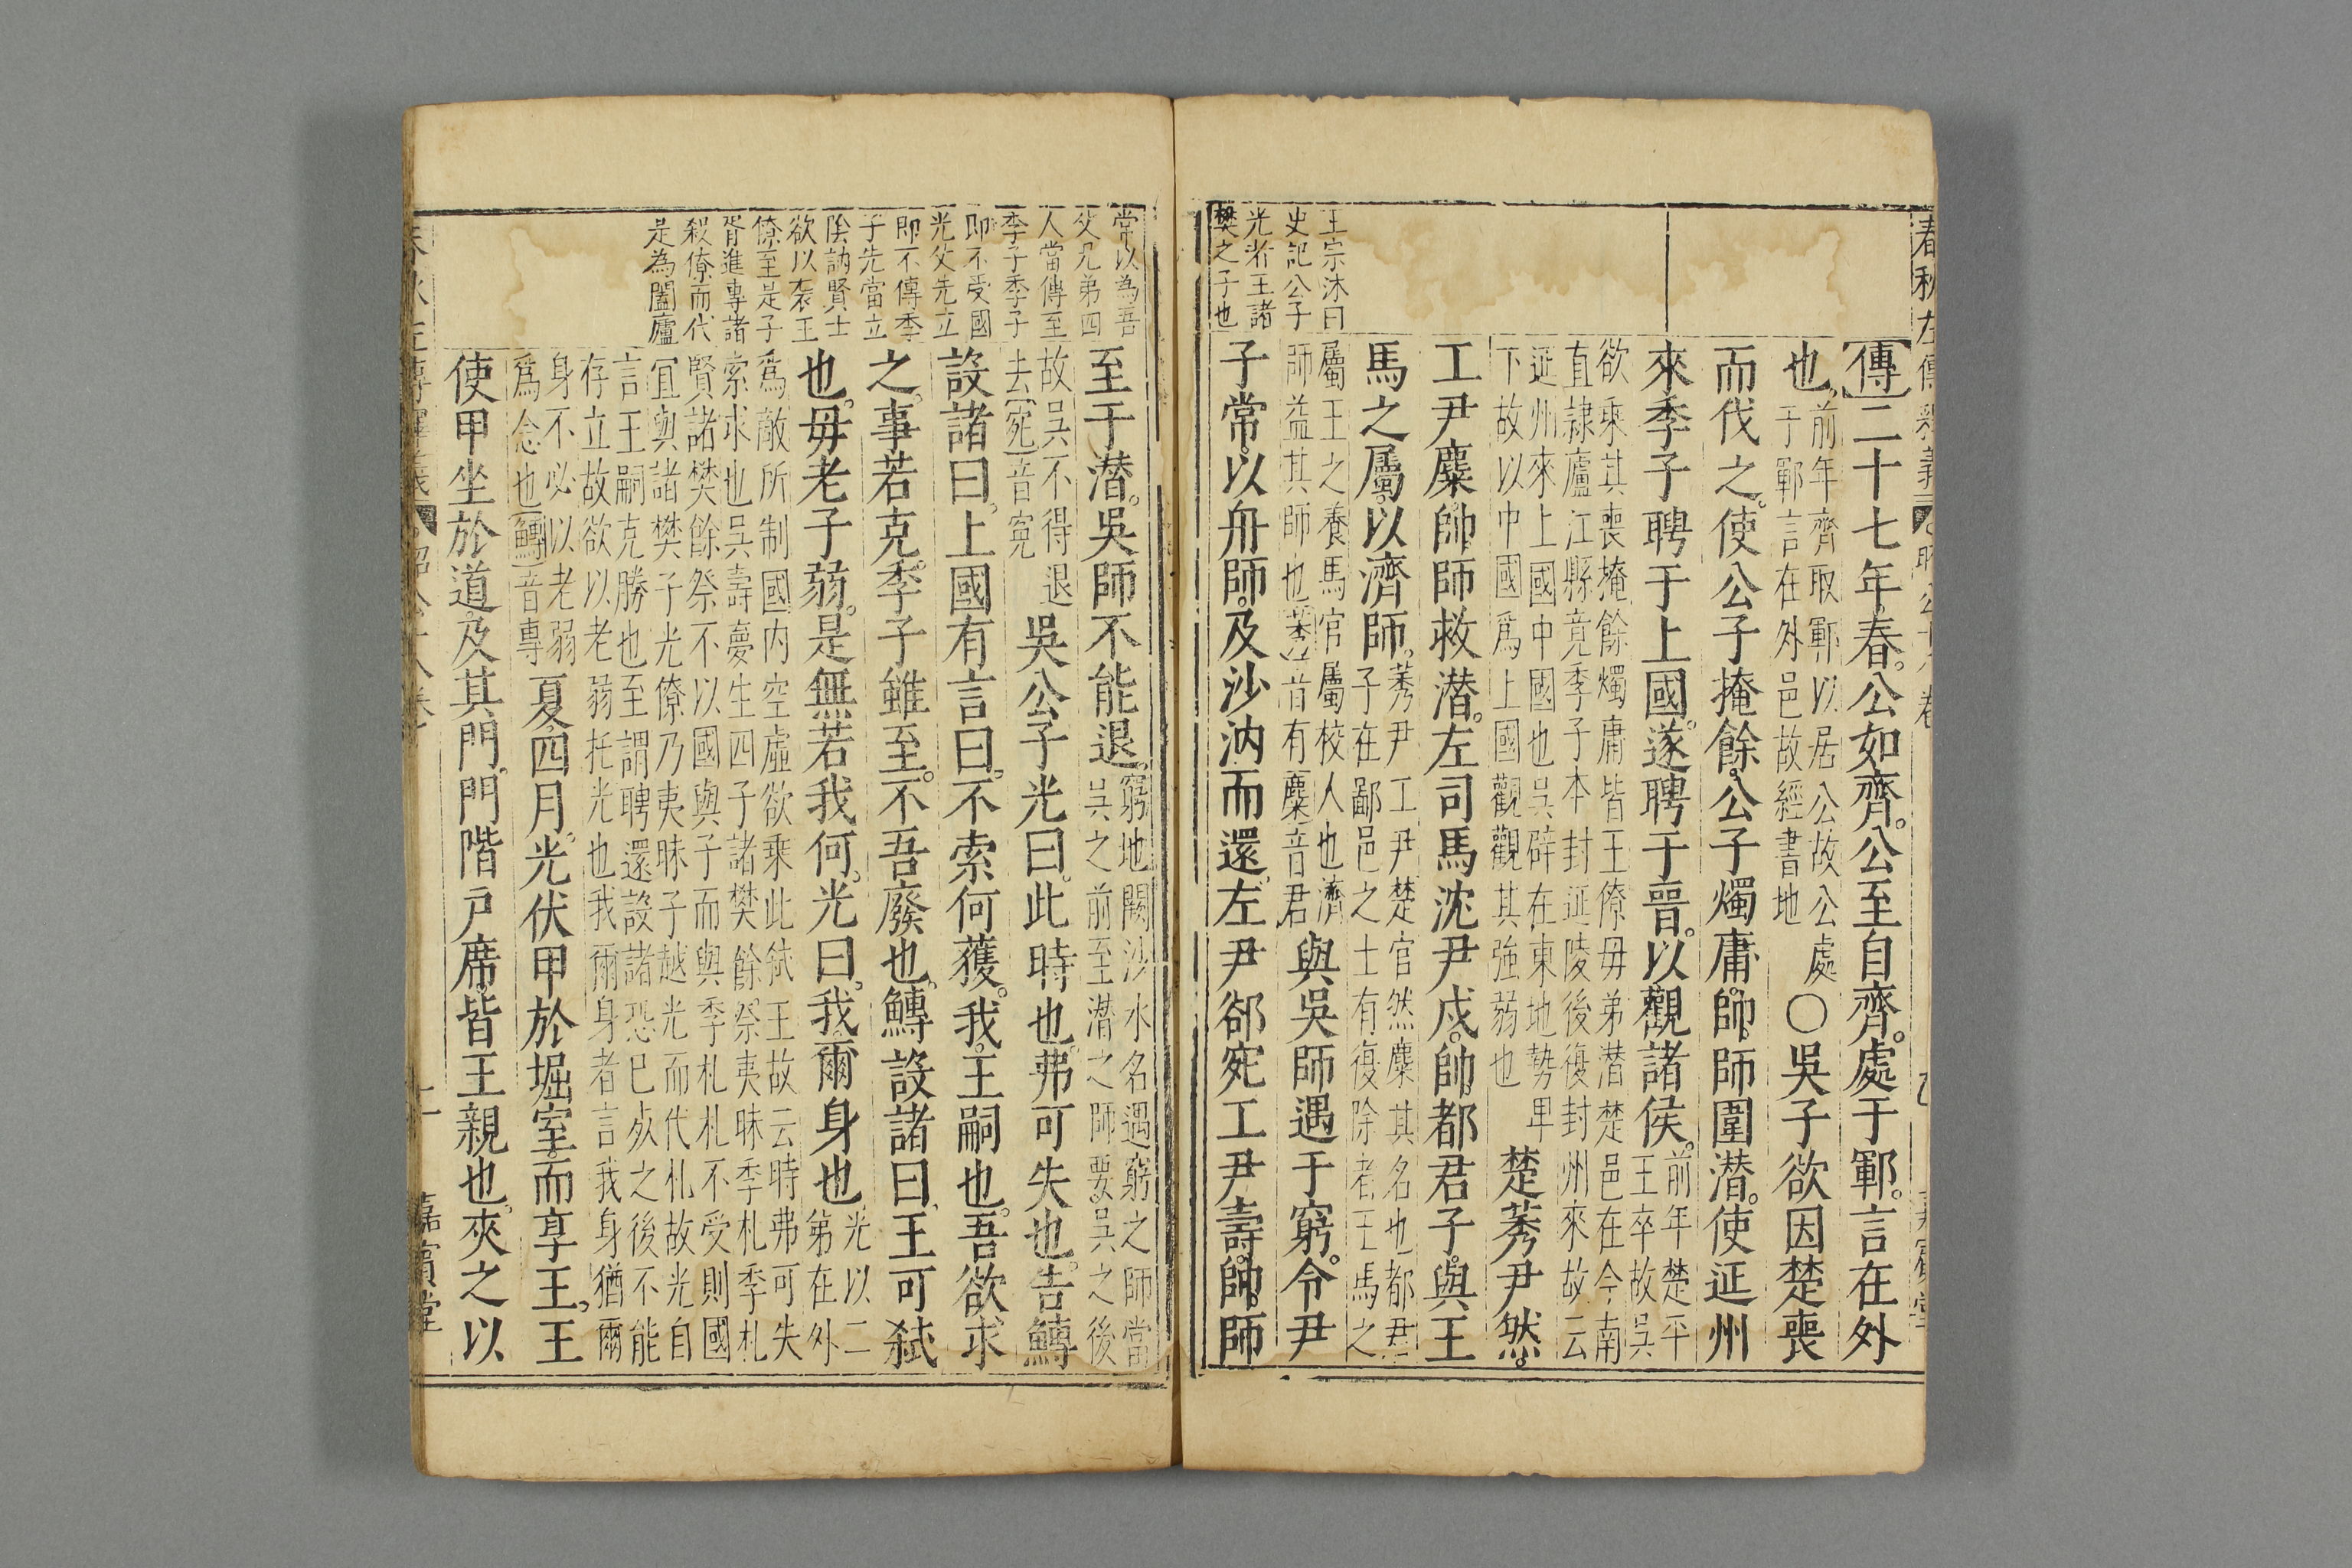 春秋左傳釋義
昭公十八卷
王宗沐曰
史記公子
光者王諸
樊之子也
【傳】二十七年。春。公如齊。公至自齊。處于鄆。言在外
也。前年齊取鄆以居公故公處
于鄆言在外邑故經書地
○吳子欲因楚喪
而伐之。使公子掩餘。公子燭庸。帥師圍潛。使延州
來季子聘于上國。遂聘于晉。以觀諸侯。前年楚平
王卒故吳
欲乘其喪掩餘燭庸皆王僚毋弟潛楚邑在今南
直隸廬江縣竟季子本封延陵後復封州來故云
延州來上國中國也吳辟在東地勢卑
下故以中國爲上國觀觀其強弱也
楚莠尹然。
工尹麇帥師救潛。左司馬沈尹戌。帥都君子。與王
馬之屬。以濟師。莠尹工尹楚官然麇其名也都君
子在鄙邑之士有復除者王馬之
屬王之養馬官屬校人也濟
師益其師也莠音有麇音君
與吳師遇于窮。令尹
子常。以舟師。及沙汭而還。左尹郤宛工尹壽。帥師
常以為吾
父兄弟四
人當傳至
季子季子
即不受國
光父先立
即不傳季
子先當立
陰訥賢士
欲以袭王
僚至是子
胥進專諸
殺僚而代
是為闔廬
至于潛。吳師不能退。窮地闕沙水名遇窮之師當
吳之前至潛之師要吳之後
故吳不得退
去【宛】音寃
吳公子光曰。此時也。弗可失也。告鱄
設諸曰。上國有言曰。不索何獲。我。王嗣也。吾欲求
之。事若克。季子雖至。不吾廢也。鱄設諸曰。王可弒
也。毋老子弱。是無若我何。光曰。我爾身也光以二
弟在外
爲敵所制國内空虛欲乘此弒王故云時弗可失
索求也吳壽夢生四子諸樊餘祭夷昧季札季札
賢諸樊餘祭不以國與子而與季札札不受則國
宜與諸樊子光僚乃夷昧子越光而代札故光自
言王嗣克勝也至謂聘還設諸恐已死之後不能
存立故欲以老弱托光也我爾身者言我身猶爾
身不必以老弱
爲念也【鱄】音專
夏四月。光伏甲於堀室。而享王。王
使甲坐於道。及其門。門階戸席。皆王親也。夾之以
嘉賓堂